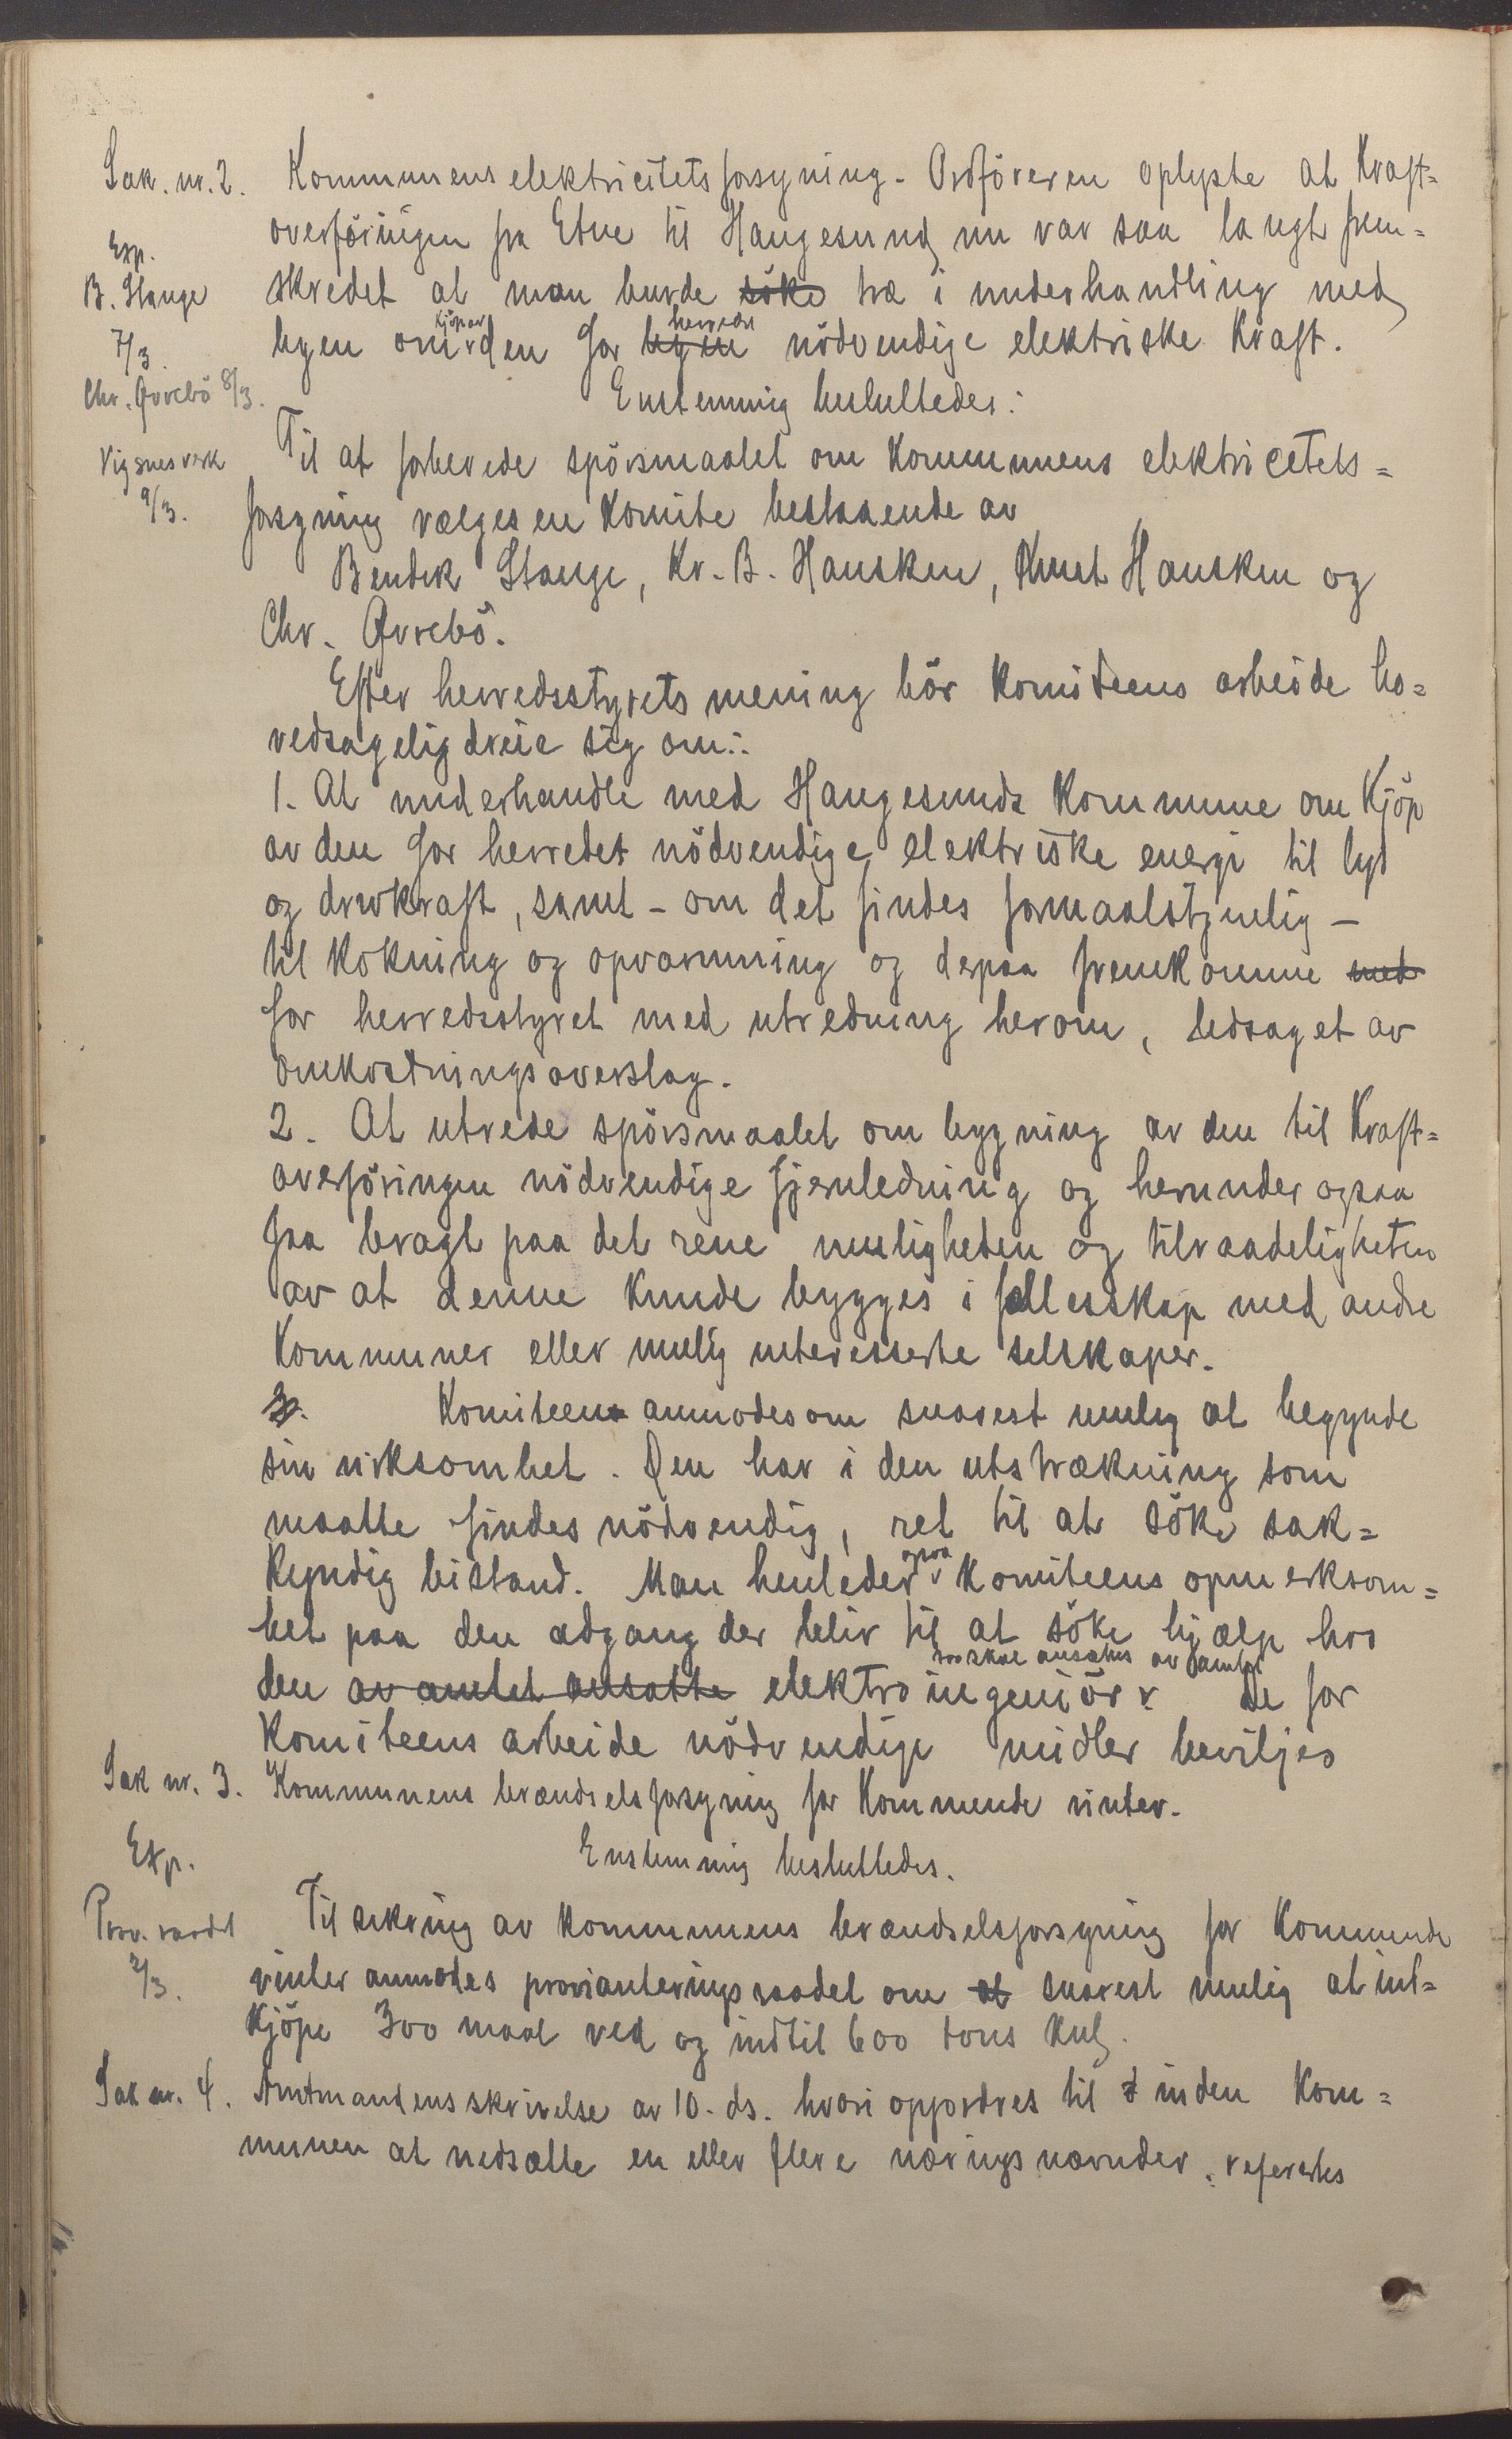 Sak. nr. 2. Kommunens elektricitetsforsyning. Ordföreren oplyste at Kraft=
overföringen fra Etne til Haugesund nu var saa langt frem=
Exp.
B. Stange skredet at man burde söke træ i underhandling med
kjöp av herredet
7/3. byen om den for byen nödvendige elektriske Kraft.
Chr. Øvrebö 8/3. Enstemmig besluttedes:
Vigsnes verk Til at forberede spörsmaalet om Kommunens elektricetets=
9/3. forsyning vælges en Komite bestaaende av
Bendik Stange, Kr. B. Hausken, Knut Hausken og
Chr. Øvrebö.
Efter herredsstyrets mening bör Komiteens arbeide ho=
vedsagelig dreie sig om:
1. At underhandle med Haugesunds Kommune om Kjöp
av den for herredet nödvendige elektriske energi til lys
og drivkraft, samt - om det findes formaalstjenlig -
til Kokning og opvarmning og derpaa fremkomme med
for herredsstyret med utredning herom, ledsaget av
omkostningsoverslag.
2. At utrede spörsmaalet om bygning av den til Kraft=
overföringen nödvendige fjernledning og herunder ogsaa
faa bragt paa det rene muligheden og tilraadeligheten
av at denne Kunde bygges i fællesskap med andre
Kommuner eller mulig interesserte selskaper.
3. Komiteen anmodes om snarest mulig at begynde
sin virksomhet. Den har i den utstrækning som
maatte findes nödvendig, ret til at söke sak=
ogsaa
Kyndig bistand. Man henleder Komiteens opmerksom=
het paa den adgang der bliv til at söke hjælp hos
som skal ansættes av amtet
den av amtet ansatte elektroingeniör. De for
Komiteens arbeide nödvendige midler beviljes
Sak nr. 3. Kommunens brændselsforsyning for Kommende vinter.
Exp. Enstemmig besluttedes.
Prov. raadet Til sikring av Kommunens brændselsforsyning for Kommende
2/3. vinter anmodes provianteringsraadet om at snarest mulig at ind=
Kjöpe 300 maal ved og indtil 600 tons Kul.
Sak nr. 4. Amtmandens skrivelse av 10. ds. hvori opfordres til inden Kom=
munen at nedsætte en eller flere næringsnævnder, refertes